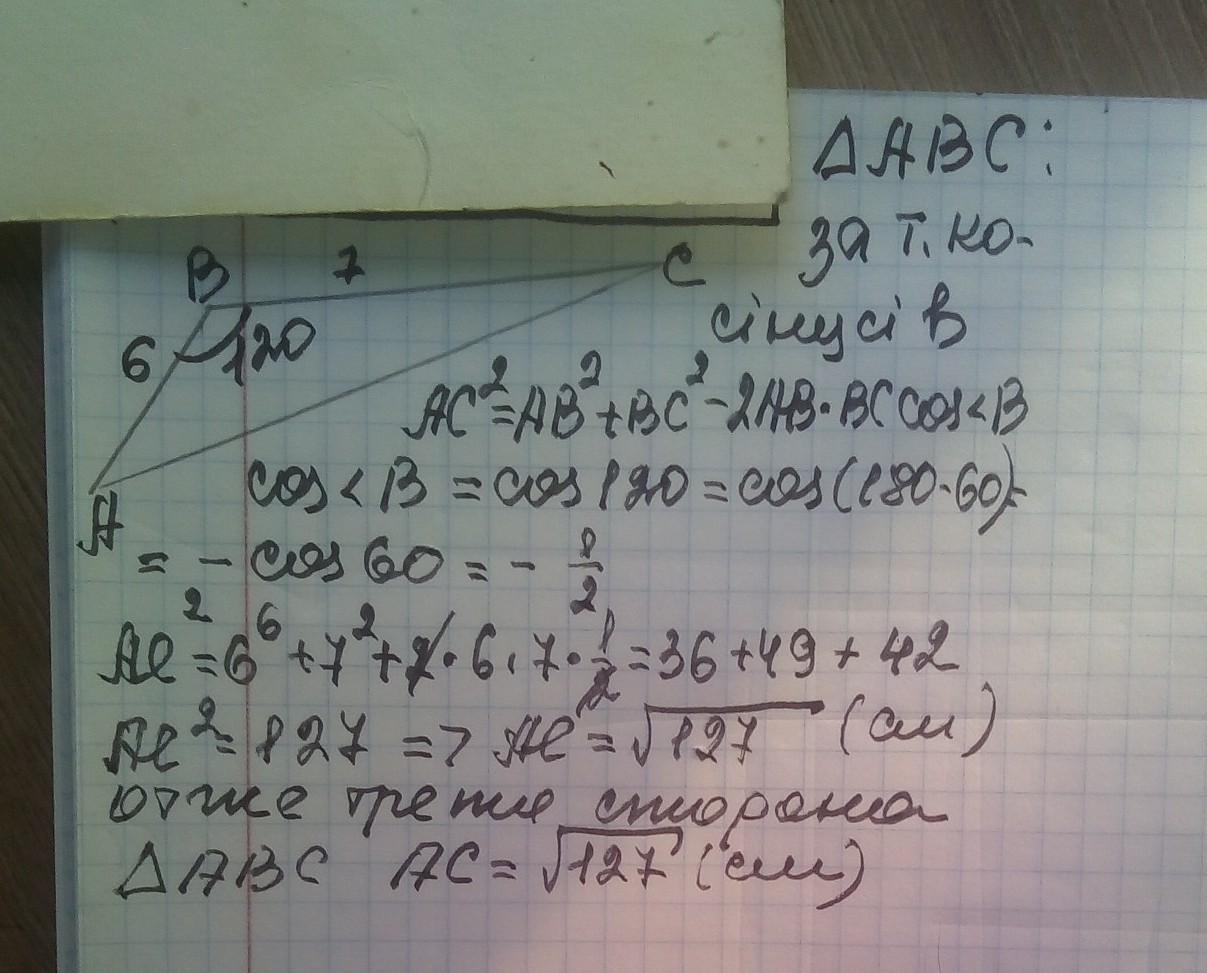 ΔABC:
за т. ко-
сінусів
B 7 C
6 120
A
AC²=AB²+BC²-2AB·BC cos<B
cos<B = cos120 = cos(180-60)=
= - cos 60 = - 1/2
AC² = 6⁶ + 7² + 2·6·7·1/2 = 36+49+42
AC² = 127 => AC = √127 (см)
отже третя сторона
ΔABC AC = √127 (см)